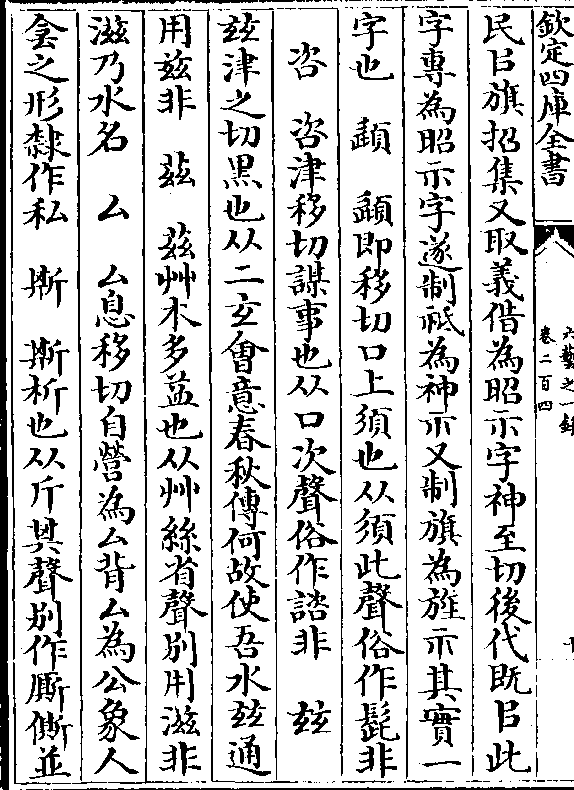 欽定四庫全書
六藝之一錄
卷二百四
民㠯旗招集又取義借為昭示字神至切後代既㠯此
字專為昭示字遂制祗為神示又制旗為旌示其實一
字也　頾　頾即移切口上須也从須此聲俗作髭非
咨　咨津移切謀事也从口次聲俗作諮非　玆
玆津之切黒也从二玄會意春秋傳何故使吾水玆通
用兹非　茲　茲艸木多益也从艸絲省聲别用滋非
滋乃水名　厶　厶息移切自營為厶背厶為公象人
㑹之形隸作私　斯　斯析也从斤其聲别作厮㒋並